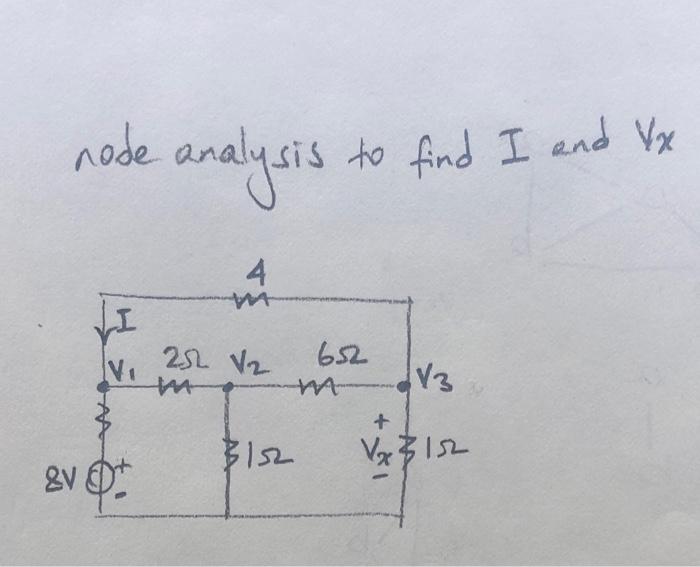 node analysis to find I and Vx
4
I
V1 2Ω V2 6Ω V3
+
8V + - 1Ω Vx 1Ω
-